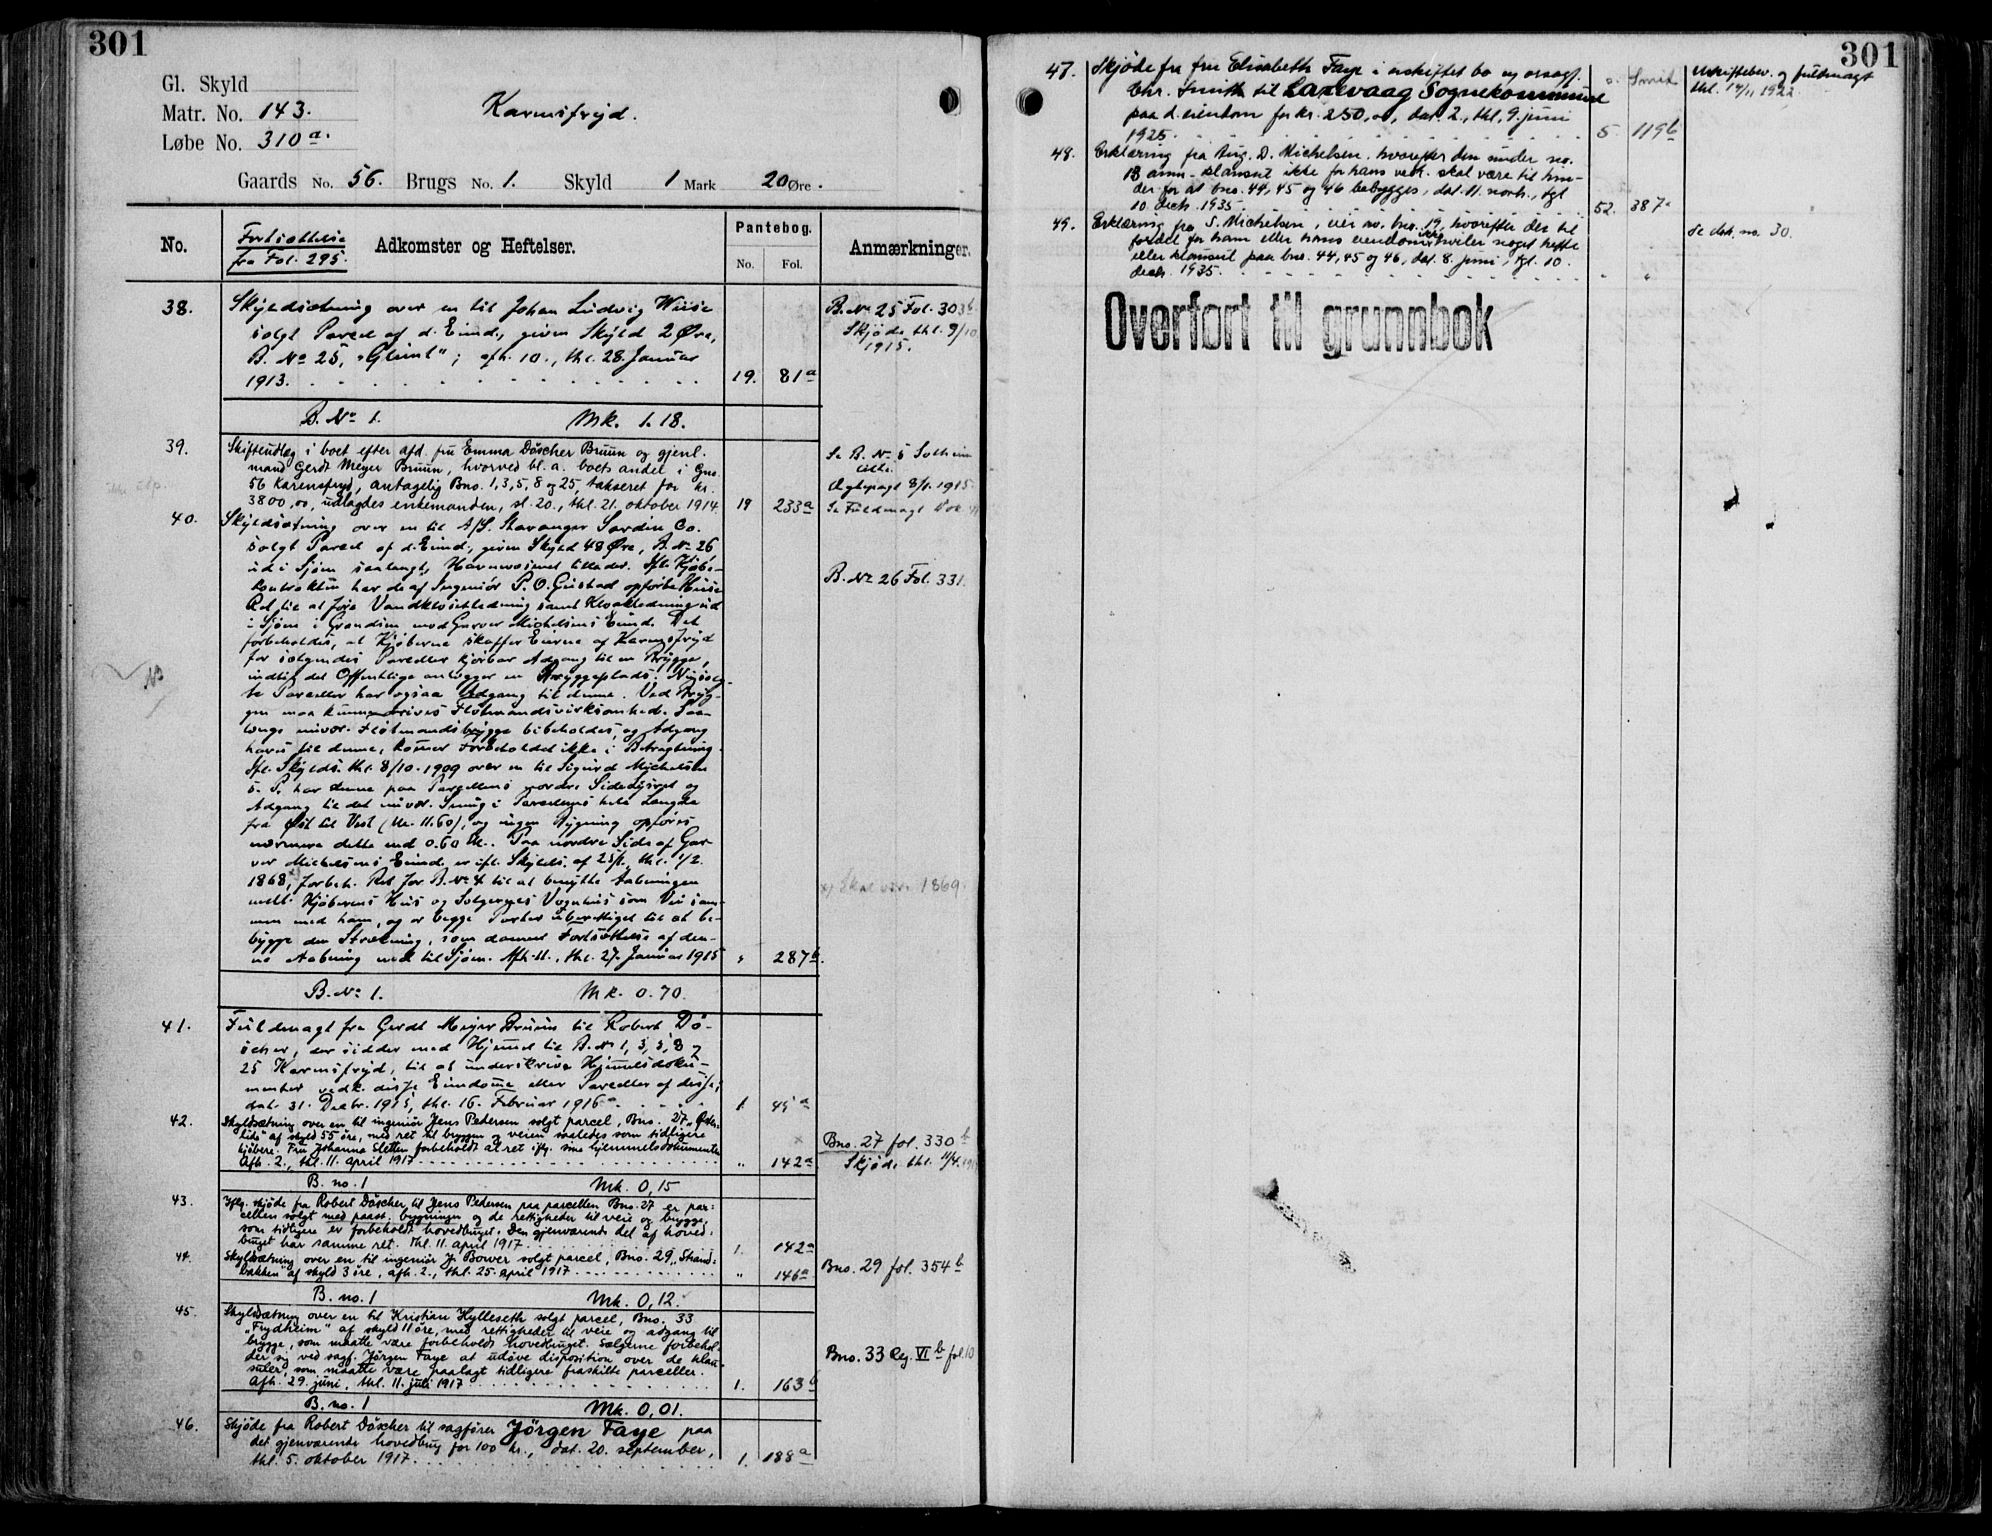 301
Gl. Skyld
Matr. No. 143.
Løbe No. 310a.
Karensfryd.
Gaards No. 56. Brugs No. 1. Skyld 1 Mark 20 Øre.
No. Fortsættelse fra Fol. 295. Adkomster og Heftelser. Pantebog. No. Fol. Anmærkninger.
38. Skyldsætning over en til Johan Ludvig Wiese
solgt Parcel af d. Eiend., given Skyld 2 Øre,
B. No 25, "Glimt"; afh. 10., thl. 28. Januar
1913. 19. 81a
B. No 25 Fol. 303b
Skjøde thl. 9/10
1915.
B. No 1. Mk. 1.18.
39. Skifteudlæg i boet efter afd. fru Emma Döscher Bruun og gjenl.
mand Gerdt Meyer Bruun, hvorved bl. a. boets andel i Gno.
56 Karensfryd, antagelig Bno. 1, 3, 5, 8 og 25, takseret for kr.
3800,00, udlagdes enkemanden, sl. 20., thl. 21. oktober 1914. 19 233a
Se B. No 5 Solheim
Ægtepagt 8/1. 1915.
Se Fuldmagt
40. Skyldsætning over en til A/S. Stavanger Sardin Co.
solgt Parcel af d. Eiend., given Skyld 48 Øre, B. No 26
ud i Sjøen saalangt, Havnevæsenet tillader. Ifl. Kjøbe-
kontrakten har de af Ingeniør P. O. Gjestad opførte Huse
Ret til at føre Vandklosetledning samt Kloakledning ud
i Sjøen i Grændsen mod Garver Michelsens Eiend. Det
forbeholdes, at Kjøberne skaffer Eierne af Karensfryd
for sælgendes Parceller kjørbar Adgang til en Brygge,
indtil det Offentlige anlægger en Bryggeplads.
te Parceller har ogsaa Adgang til denne. Ved Bryg-
gen maa kunne drives Fløtmandsvirksomhed. Saa-
længe nuvær. Fløtmandsbrygge bibeholdes, og Adgang
haves til denne, kommer Forbeholdet ikke i Betragtning.
Ifl. Skylds. thl. 8/10. 1909 over en til Sigurd Michelsen
s. P. har denne paa Parcellens nordre Side Lysret og
Adgang til det nuvær. Smug i Parcellens hele Længde
fra Øst til Vest (M. 11.60), og ingen Bygning opføres
nærmere dette end 0.60 M. Paa nordre Side af Gar-
ver Michelsens Eiend. er ifl. Skylds. af 25/1, thl. 1/2.
1868, forbeh. Ret for B. No 4 til at benytte Aabningen
mell. Kjøberens Hus og Sælgernes Vognhus som Vei sam-
men med ham, og er begge Parter uberettiget til at be-
bygge den Strækning, som danner Fortsættelse af den-
ne Aabning ned til Sjøen. Afh. 11., thl. 27. Januar 1915 " 287b.
B. No 26 Fol. 331.
x) Skal være 1869.
NB
B. No 1. Mk. 0.70.
41. Fuldmagt fra Gerdt Meyer Bruun til Robert Dö-
scher, der sidder med Hjemmel til B. No 1, 3, 5, 8 &
25 Karensfryd, til at underskrive Hjemmelsdoku-
menter vedk. disse Eiendomme eller Parceller af disse;
dat. 31. Decbr. 1915, thl. 16. Februar 1916. 1. 45a
42. Skyldsætning over en til ingeniør Jens Pedersen solgt parcel, Bno. 27 „Øster-
lide" af skyld 55 øre, med ret til bryggen og veien saaledes som tidligere
kjøbere. Fru Johanna Sletten forbeholdt al ret iflg. sine hjemmelsdokumenter.
Afh. 2., thl. 11. april 1917. " 142a
Bno. 27 fol. 330b
Skjøde thl. 11/4.
B. no. 1 Mk. 0,15
43. Iflg. skjøde fra Robert Döscher til Jens Pedersen paa parcellen Bno. 27 er par-
cellen solgt med paast. bygninger og de rettigheder til veie og brygge,
som tidligere er forbeholdt hovedbruget. Den gjenværende del af hoved-
bruget har samme ret. Thl. 11. april 1917. 1. 142a
44. Skyldsætning over en til ingeniør J. Bower solgt parcel, Bno. 29, „Strand-
bakken" af skyld 3 øre, afh. 2., thl. 25. april 1917 " 146a
Bno. 29 fol. 354b
B. no. 1 Mk. 0,12.
45. Skyldsætning over en til Kristian Hylleseth solgt parcel, Bno. 33
„Frydheim" af skyld 11 øre, med rettigheder til veie og adgang til
brygge, som maatte være forbeholdt hovedbruget. Sælgerne forbehol-
der sig ved sagf. Jørgen Faye at udøve disposition over de klau-
suler, som maatte være paalagt tidligere fraskilte parceller.
Afh. 29. juni, thl. 11. juli 1917 1. 163b
Bno. 33 Reg. VIb fol. 10
B. no. 1 Mk. 0,01.
46. Skjøde fra Robert Döscher til sagfører Jörgen Faye paa
det gjenværende hovedbrug for 100 kr., dat. 20. september,
thl. 5. oktober 1917. 1. 188a
301
47. Skjøde fra fru Elisabeth Faye i uskiftet bo og orsagf.
Chr. Smith til Laxevaag Sognekommune
paa d. eiendom for kr. 250,00, dat. 2., thl. 9. juni
1925. 5. 119b
Uskiftebev. og fuldmagt
thl. 14/11 1922
48. Erklæring fra Aug. D. Michelsen, hvorefter den under no.
13 anm. klausul ikke for hans vedk. skal være til hin-
der for at bno. 44, 45 og 46 bebygges, dat. 11. novb., tgl
10. decb. 1935 52. 387a
49. Erklæring fra S. Michelsen, eier av bno. 19, hvorefter der til
fordel for ham eller hans eiendom ikke hviler noget hefte
eller klausul paa bno. 44, 45 og 46, dat. 8. juni, tgl. 10.
decb. 1935. " "
Se dok. no. 30.
Overført til grunnbok